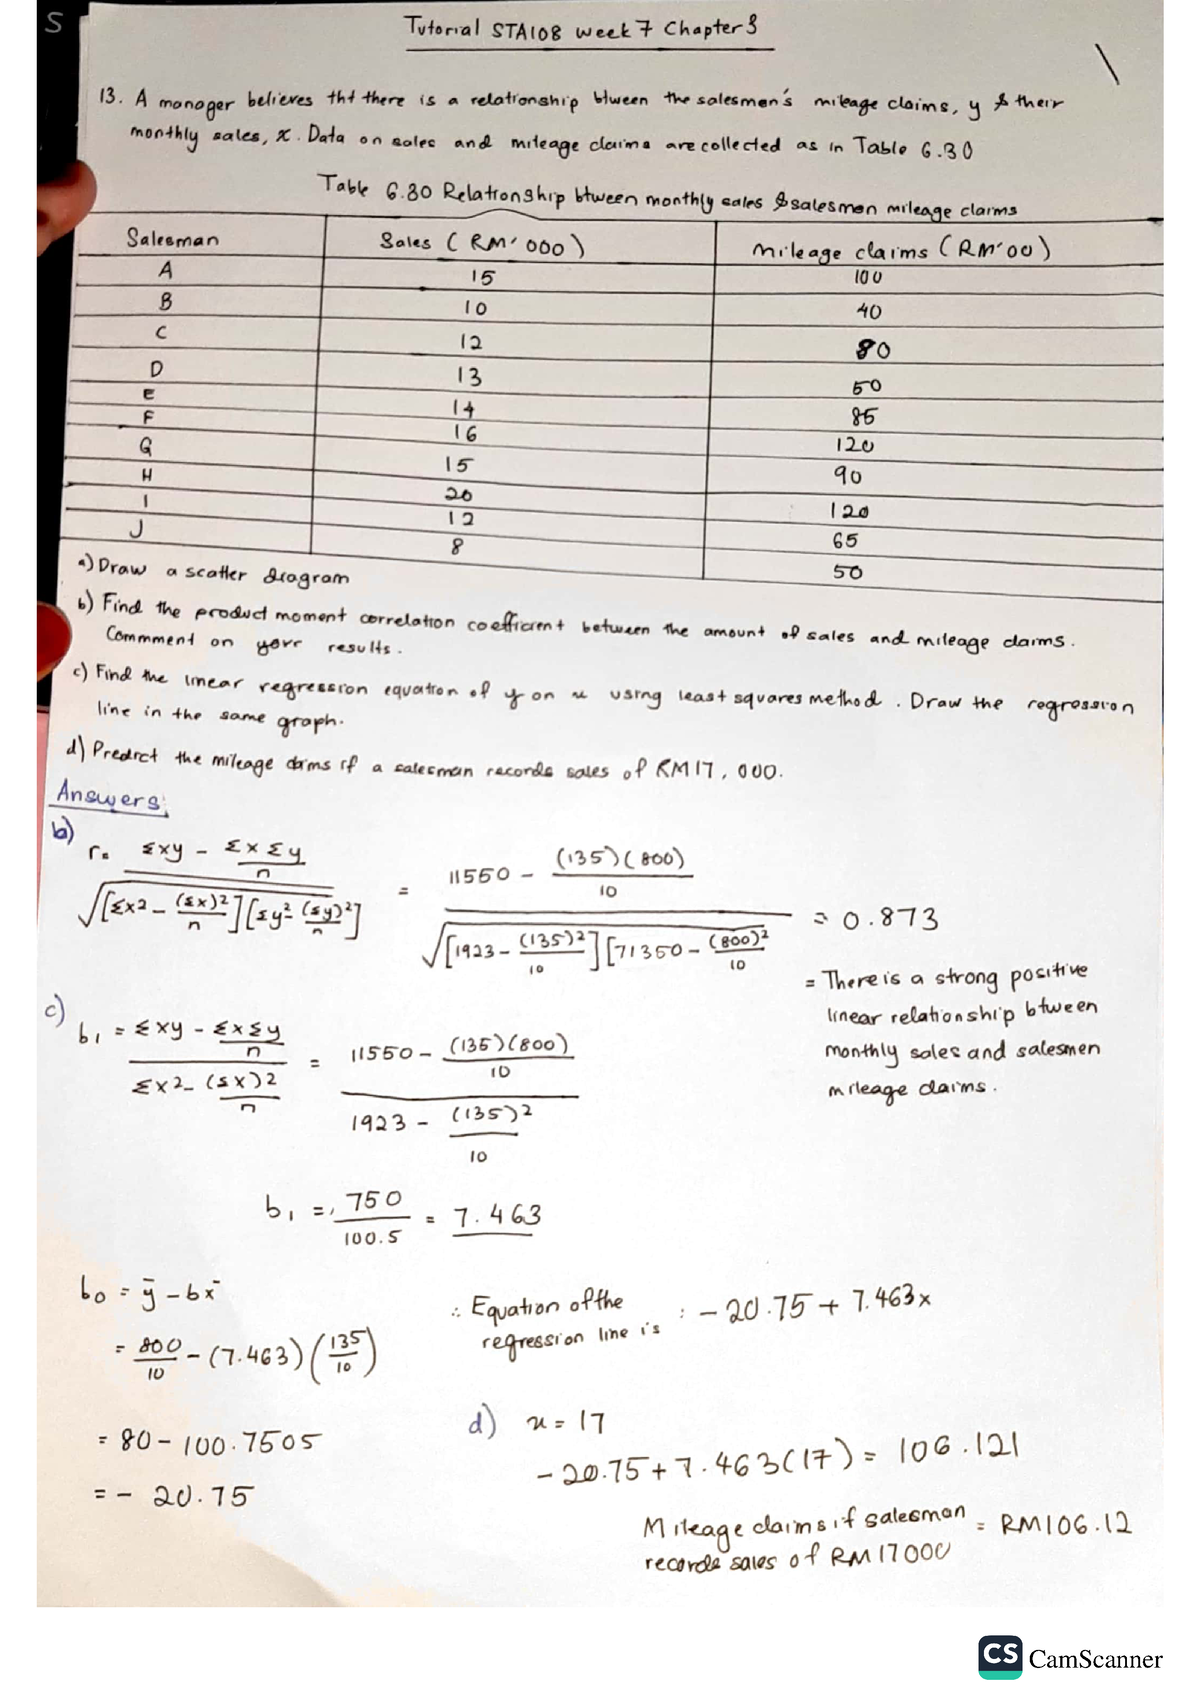 S
Tutorial STA108 week 7 Chapter 3
13. A manager believes tht there is a relationship btween the salesmen's mileage claims, y & their
monthly sales, x. Data on sales and mileage claims are collected as in Table 6.30
Table 6.30 Relationship btween monthly sales & salesmen mileage claims
Salesman Sales (RM' 000) mileage claims (RM'00)
A 15 100
B 10 40
C 12 80
D 13 50
E 14 85
F 16 120
G 15 90
H 20 120
I 12 65
J 8 50
a) Draw a scatter diagram
b) Find the product moment correlation coefficient between the amount of sales and mileage claims.
Commment on your results.
c) Find the linear regression equation of y on x using least squares method. Draw the regression
line in the same graph.
d) Predict the mileage claims if a salesman records sales of RM17, 000.
Answers:
b)
r = Σxy - Σx Σy / n / √[Σx2 - (Σx)2 / n][Σy2 - (Σy)2 / n] = 11550 - (135)(800) / 10 / √[1923 - (135)2 / 10][71350 - (800)2 / 10] = 0.873
= There is a strong positive
linear relationship btween
monthly sales and salesmen
mileage claims.
c)
b1 = Σxy - ΣxΣy / n / Σx2 - (Σx)2 / n = 11550 - (135)(800) / 10 / 1923 - (135)2 / 10
b1 = 750 / 100.5 = 7.463
b0 = ȳ - bx̄
= 800 / 10 - (7.463)(135 / 10)
= 80 - 100.7505
= - 20.75
∴ Equation of the
regression line is : - 20.75 + 7.463x
d) x = 17
- 20.75 + 7.463(17) = 106.121
Mileage claims if salesman
records sales of RM17000 = RM106.12
CS CamScanner